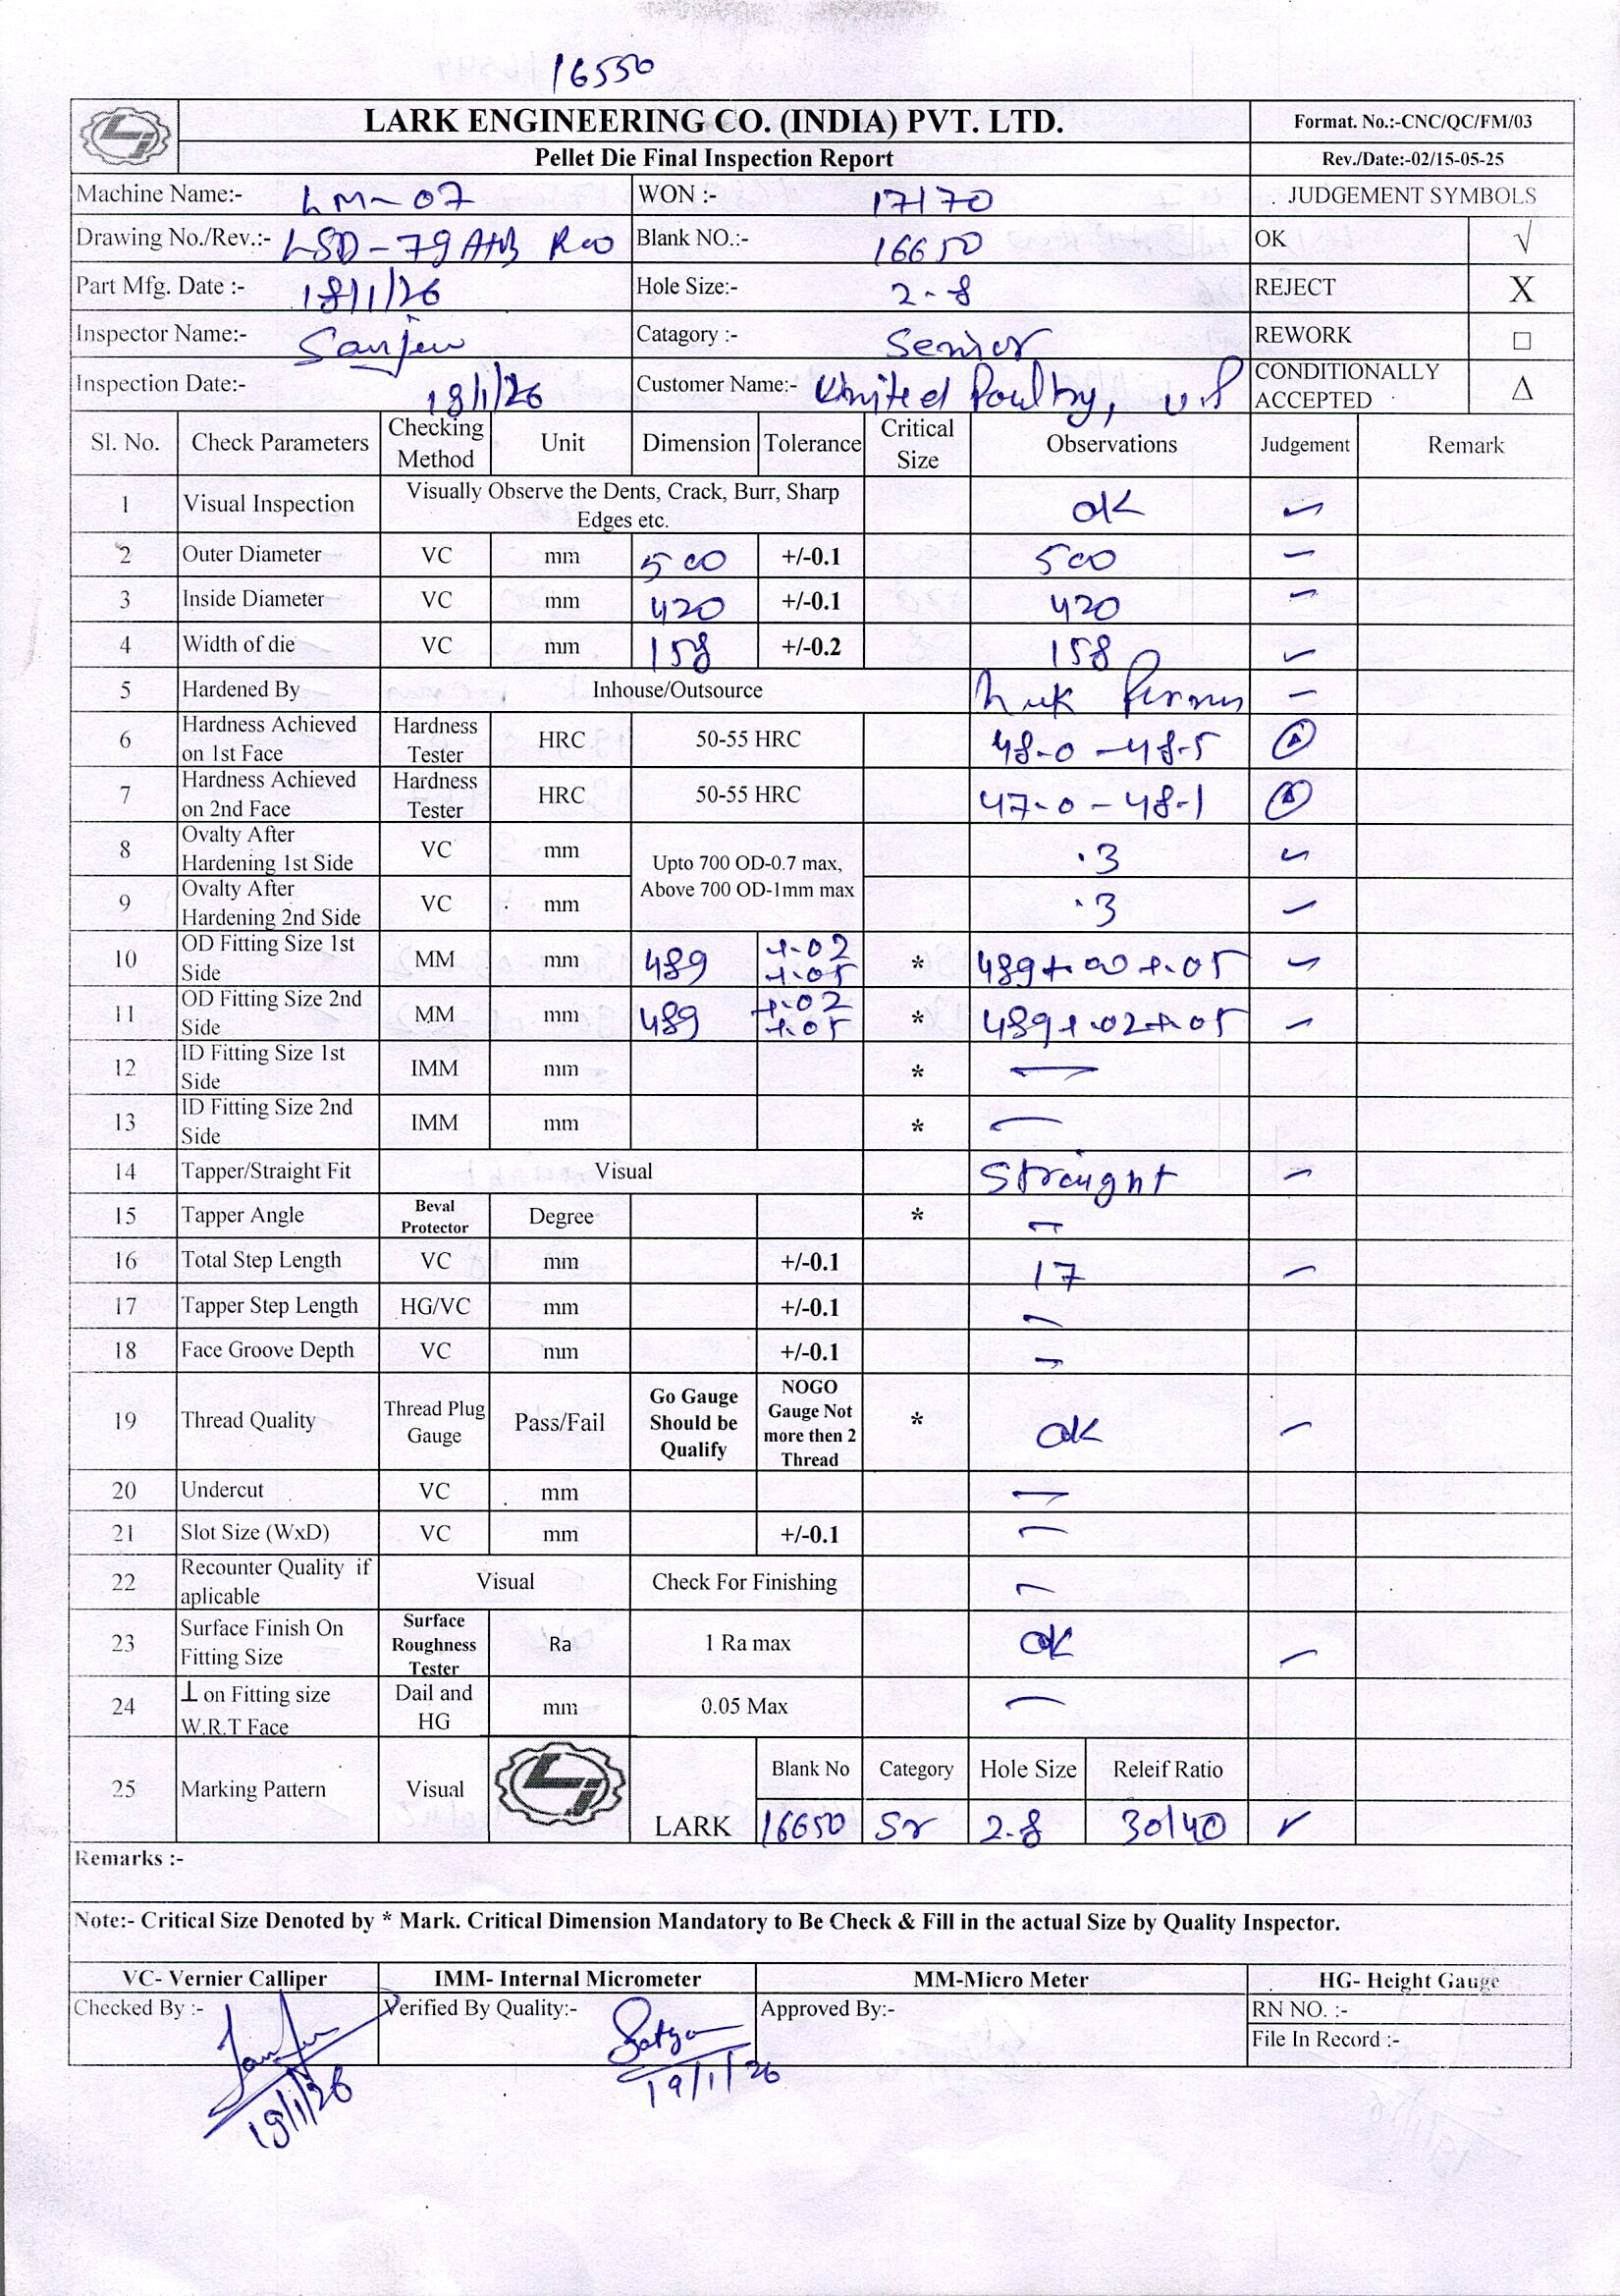 16550
LARK ENGINEERING CO. (INDIA) PVT. LTD.
Format. No.:-CNC/QC/FM/03
Pellet Die Final Inspection Report
Rev./Date:-02/15-05-25
Machine Name:- LM-07 WON :- 17170 JUDGEMENT SYMBOLS
Drawing No./Rev.:- LSD-79 R00 Blank NO.:- 16650 OK √
Part Mfg. Date :- 18/1/26 Hole Size:- 2.8 REJECT X
Inspector Name:- Sanjeev Catagory :- Senior REWORK □
Inspection Date:- 18/1/26 Customer Name:- United Poultry, U.P CONDITIONALLY ACCEPTED Δ
Sl. No. Check Parameters Checking Method Unit Dimension Tolerance Critical Size Observations Judgement Remark
1 Visual Inspection Visually Observe the Dents, Crack, Burr, Sharp Edges etc. OK
2 Outer Diameter VC mm 500 +/-0.1 500
3 Inside Diameter VC mm 420 +/-0.1 420
4 Width of die VC mm 158 +/-0.2 158
5 Hardened By Inhouse/Outsource
6 Hardness Achieved on 1st Face Hardness Tester HRC 50-55 HRC 48.0 - 48.5 Δ
7 Hardness Achieved on 2nd Face Hardness Tester HRC 50-55 HRC 47.0 - 48.1 Δ
8 Ovalty After Hardening 1st Side VC mm Upto 700 OD-0.7 max, Above 700 OD-1mm max .3
9 Ovalty After Hardening 2nd Side VC mm .3
10 OD Fitting Size 1st Side MM mm 489 +.02 +.05 * 489+.00+.05
11 OD Fitting Size 2nd Side MM mm 489 +.02 +.05 * 489+.02+.05
12 ID Fitting Size 1st Side IMM mm * —
13 ID Fitting Size 2nd Side IMM mm * —
14 Tapper/Straight Fit Visual Straight
15 Tapper Angle Beval Protector Degree * —
16 Total Step Length VC mm +/-0.1 17
17 Tapper Step Length HG/VC mm +/-0.1 —
18 Face Groove Depth VC mm +/-0.1 —
19 Thread Quality Thread Plug Gauge Pass/Fail Go Gauge Should be Qualify NOGO Gauge Not more then 2 Thread * OK
20 Undercut VC mm —
21 Slot Size (WxD) VC mm +/-0.1 —
22 Recounter Quality if aplicable Visual Check For Finishing —
23 Surface Finish On Fitting Size Surface Roughness Tester Ra 1 Ra max OK
24 ⊥ on Fitting size W.R.T Face Dail and HG mm 0.05 Max —
25 Marking Pattern Visual LARK Blank No Category Hole Size Releif Ratio
16650 Sr 2.8 30/40 ✓
Remarks :-
Note:- Critical Size Denoted by * Mark. Critical Dimension Mandatory to Be Check & Fill in the actual Size by Quality Inspector.
VC- Vernier Calliper IMM- Internal Micrometer MM-Micro Meter HG- Height Gauge
Checked By :- Verified By Quality:- Satyam Approved By:- RN NO. :-
File In Record :-
19/1/26 19/1/26